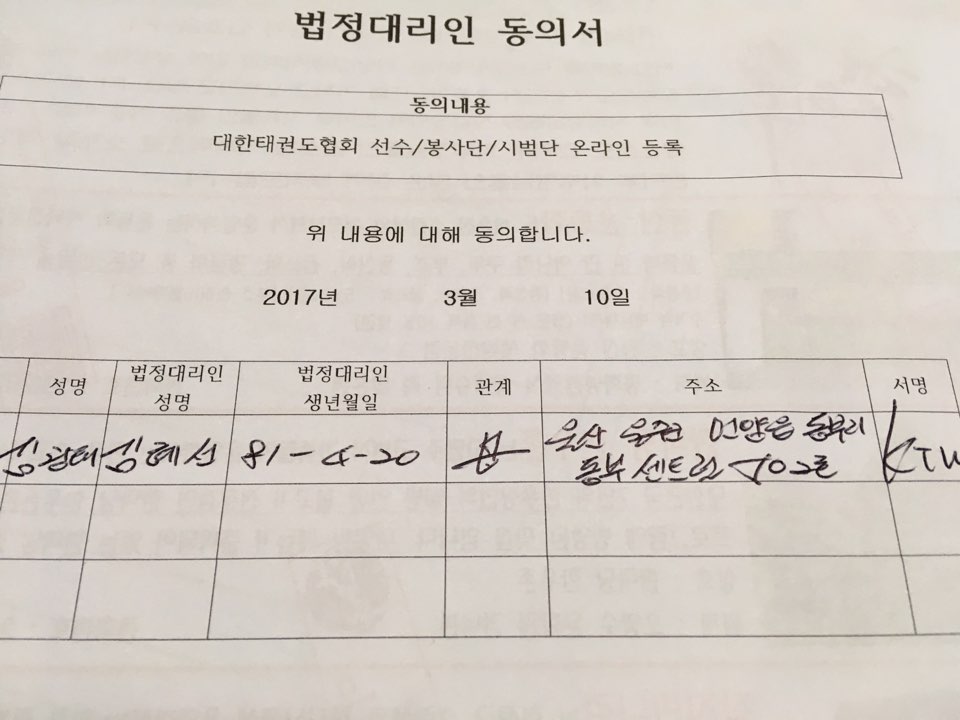 법정대리인 동의서
동의내용
대한태권도협회 선수/봉사단/시범단 온라인 등록
위 내용에 대해 동의합니다.
2017년 3월 10일
성명 법정대리인 성명 법정대리인 생년월일 관계 주소 서명
김혜선 81-4-20 울산 울주군 언양읍 동부리
동부 센트럴